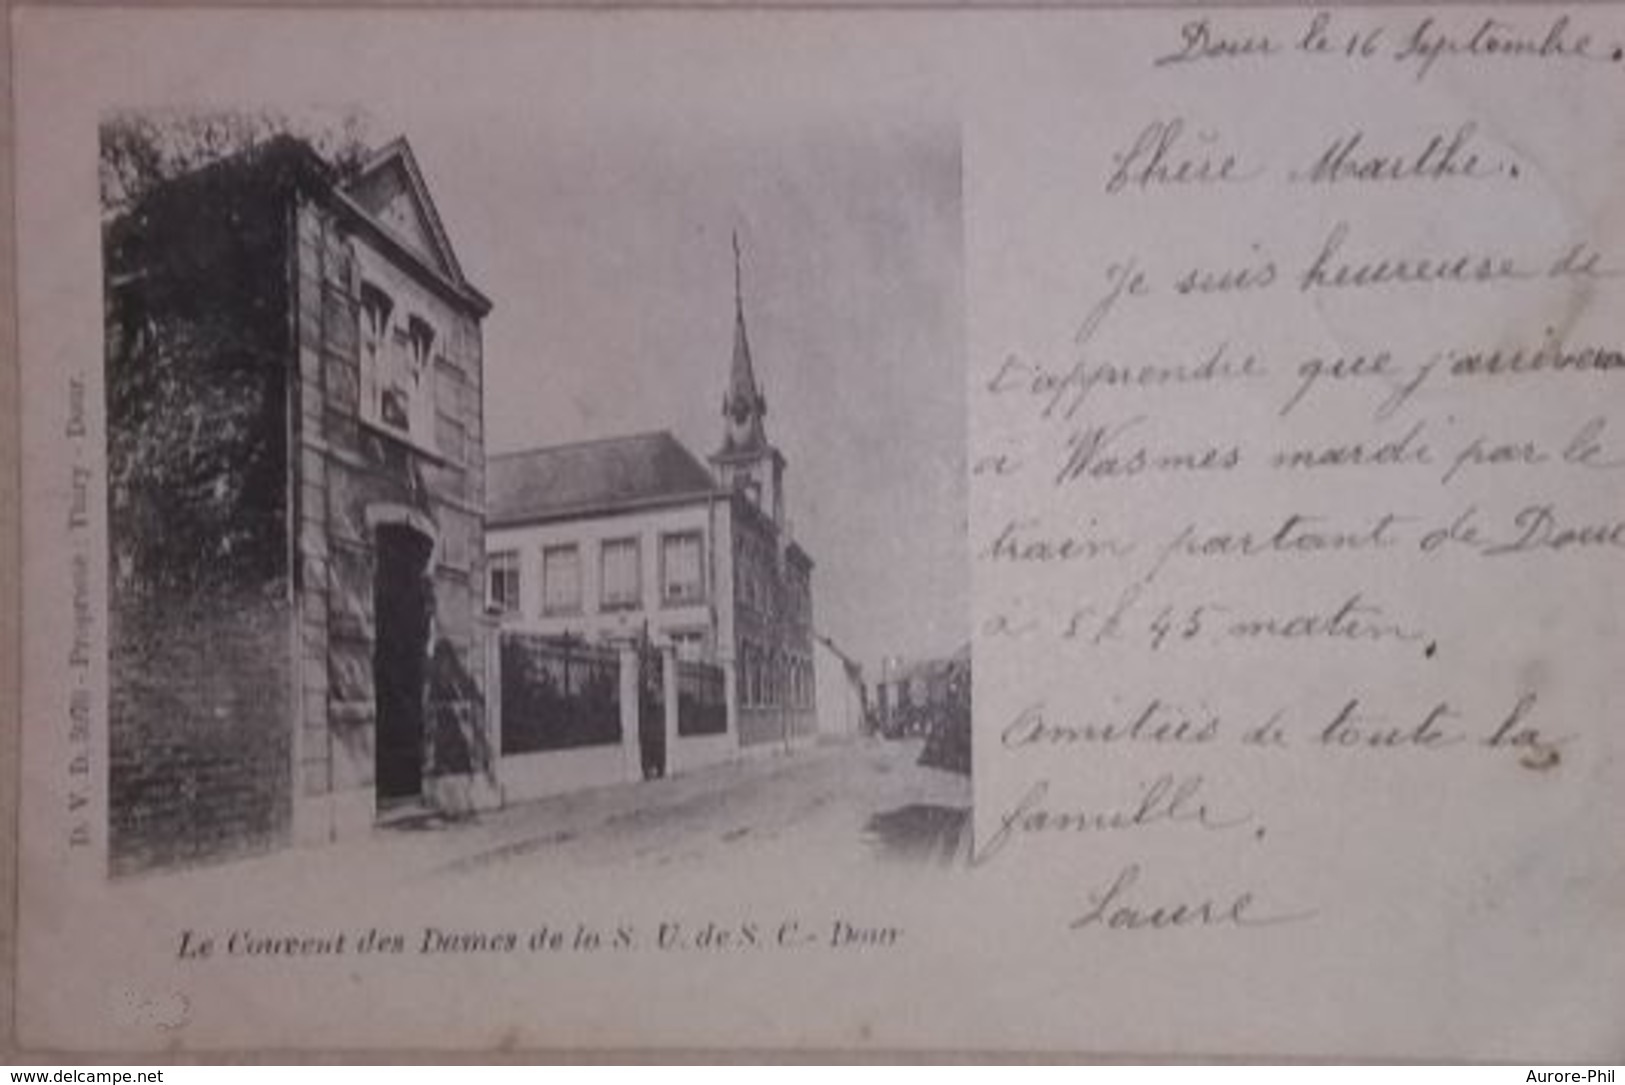 Dour le 16 Septembre.
Chère Marthe.
Je suis heureuse de
t'apprendre que j'arriverai
à Wasmes mardi par le
train partant de Dour
à 5 h 45 matin.
Amitiés de toute la
famille.
Laure
D. V. D. - Propriété Thiry - Dour.
Le Couvent des Dames de la S. U. de S. C. - Dour
www.delcampe.net
Aurore-Phil